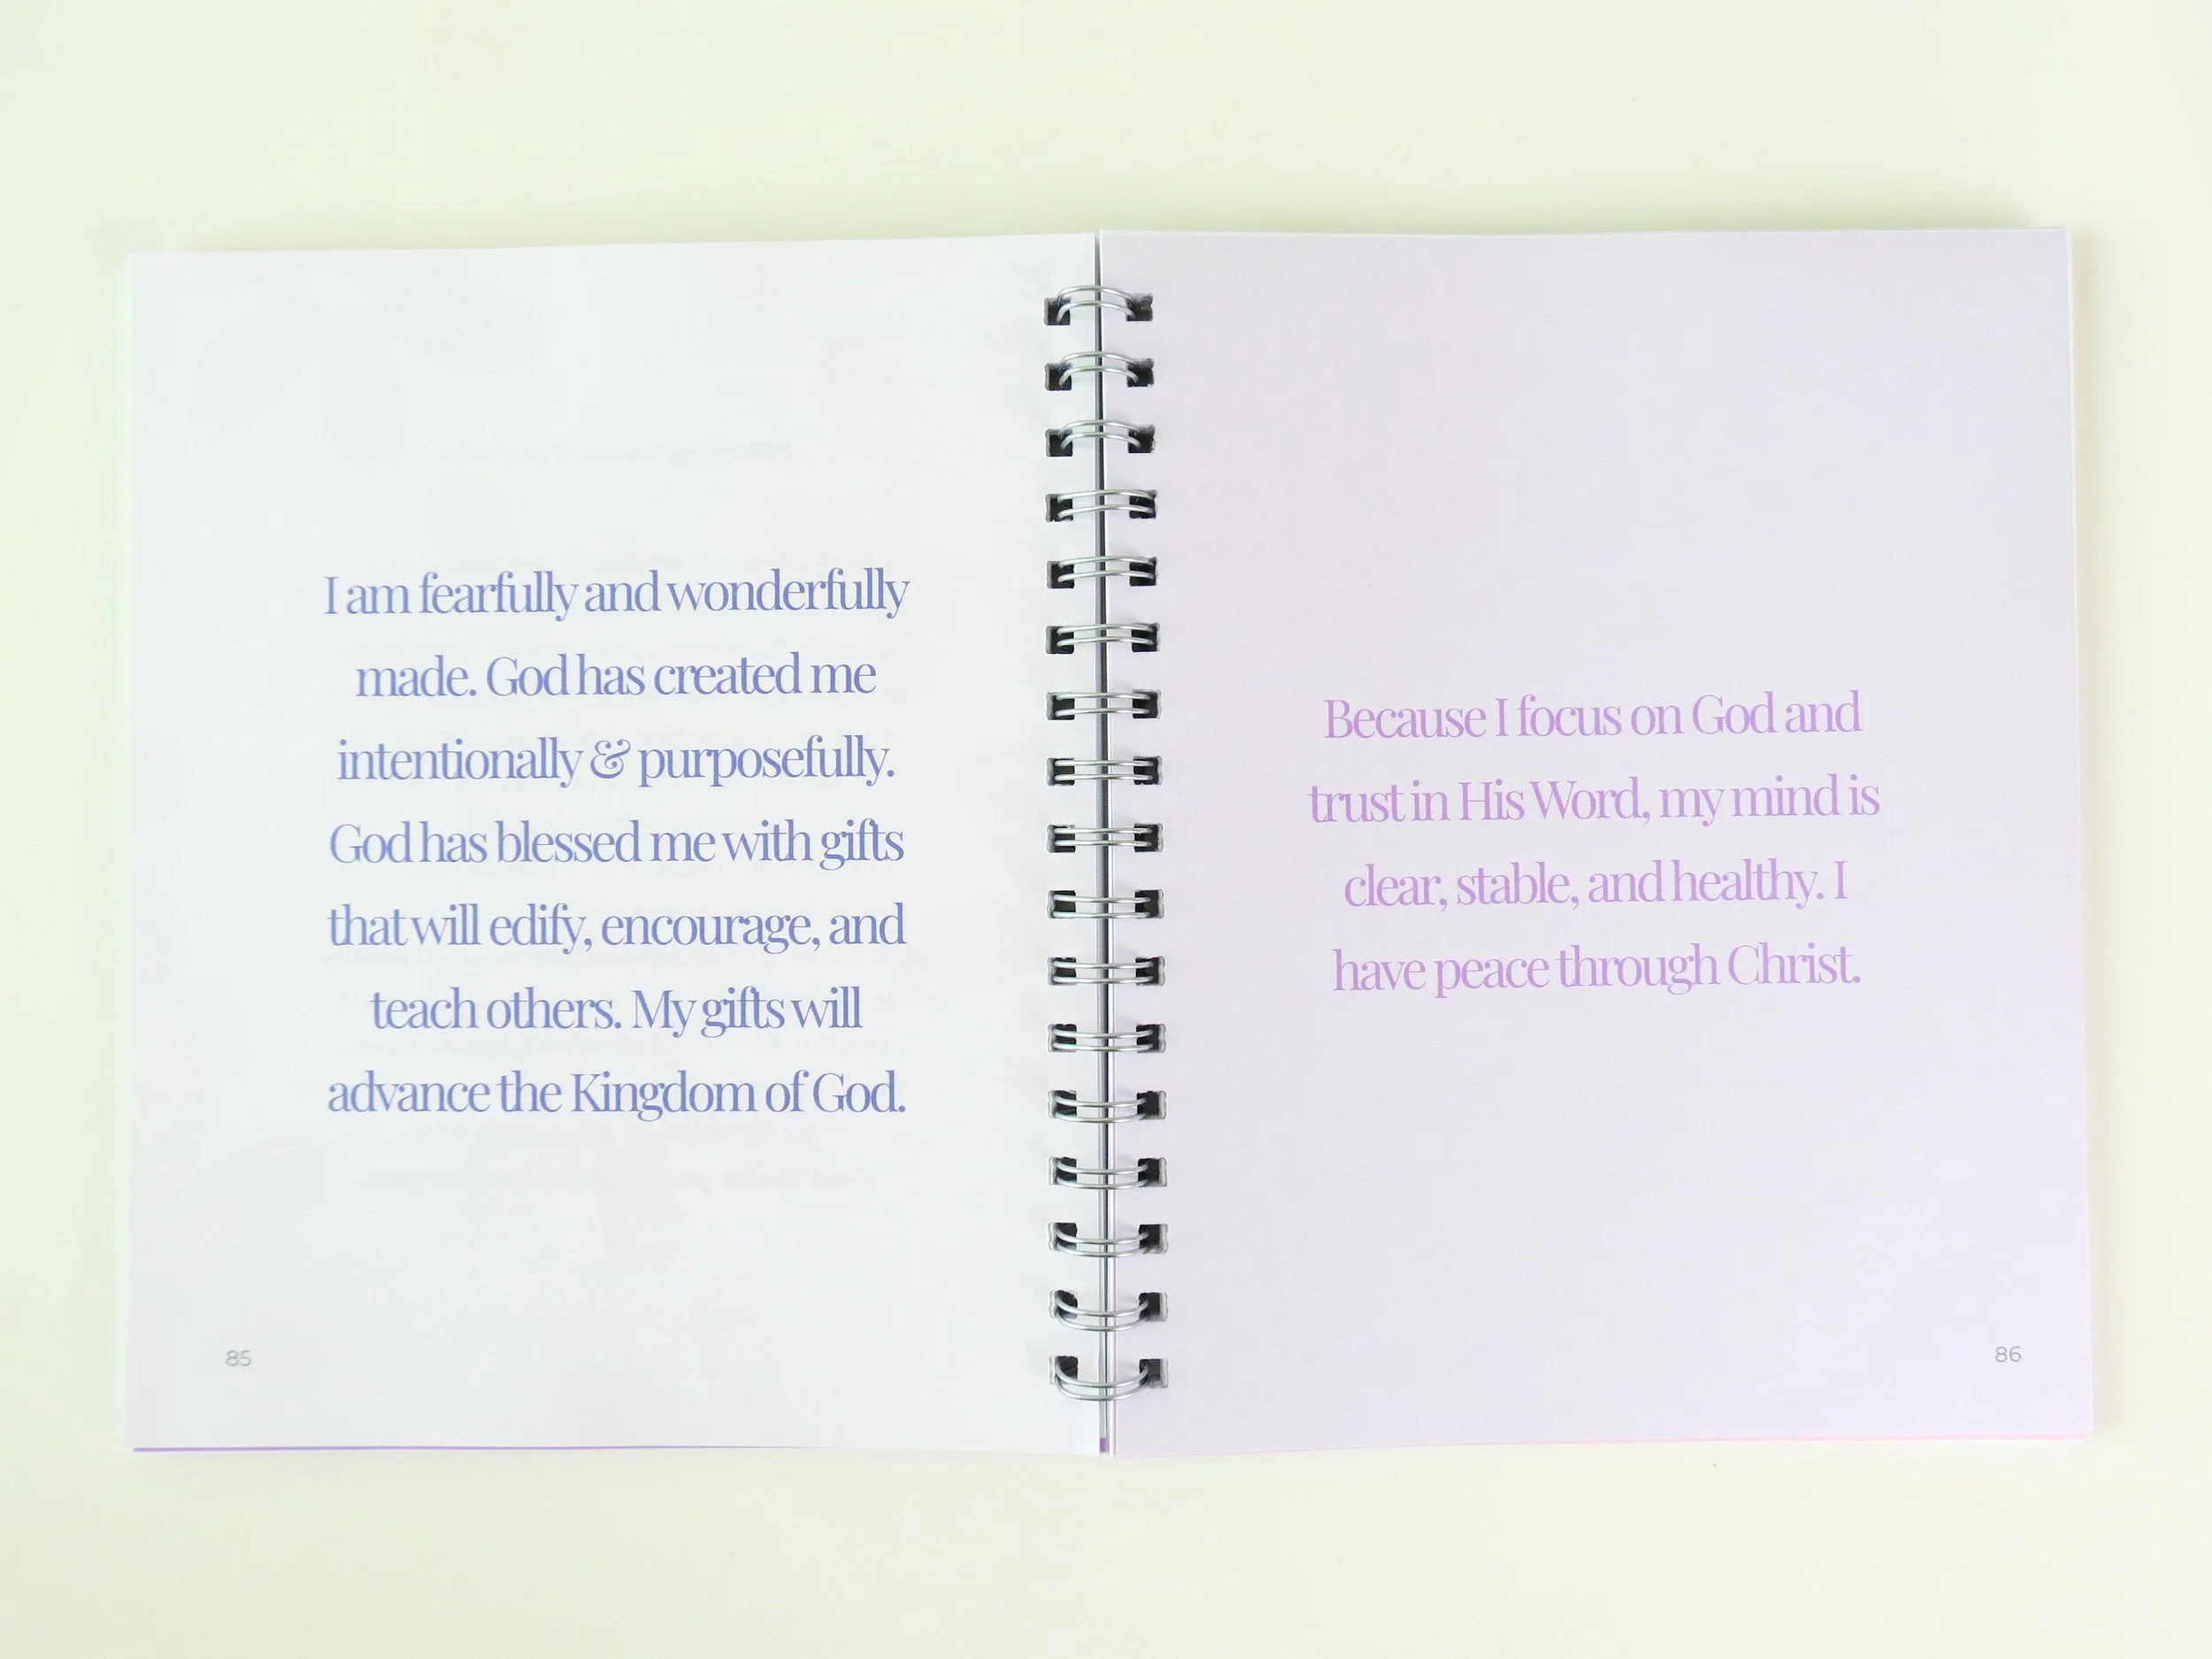 I am fearfully and wonderfully
made. God has created me
intentionally & purposefully.
God has blessed me with gifts
that will edify, encourage, and
teach others. My gifts will
advance the Kingdom of God.
85
Because I focus on God and
trust in His Word, my mind is
clear, stable, and healthy. I
have peace through Christ.
86